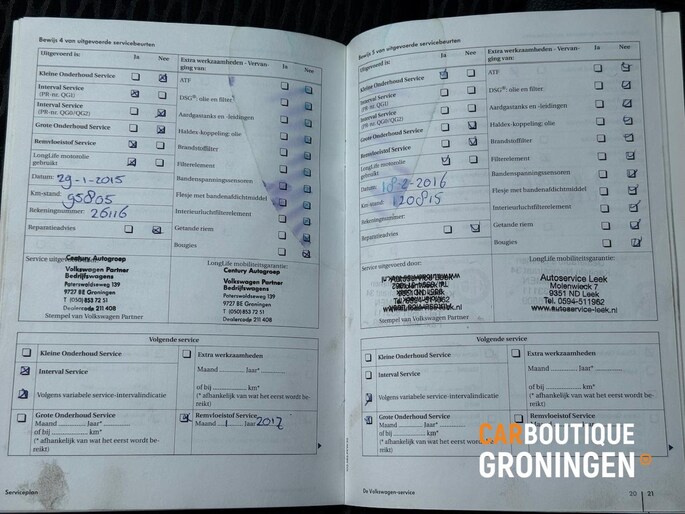 Bewijs 4 van uitgevoerde servicebeurten
Uitgevoerd is: Ja Nee
Extra werkzaamheden - Vervanging van: Ja Nee
Kleine Onderhoud Service
Interval Service
(PR-nr. QG1)
Interval Service
(PR-nr. QG0/QG2)
Grote Onderhoud Service
Remvloeistof Service
LongLife motorolie
gebruikt
ATF
DSG®: olie en filter
Aardgastanks en -leidingen
Haldex-koppeling: olie
Brandstoffilter
Filterelement
Bandenspanningssensoren
Flesje met bandenafdichtmiddel
Interieurluchtfilterelement
Getande riem
Bougies
Datum: 29-1-2015
Km-stand: 95805
Rekeningnummer: 26116
Reparatieadvies
Service uitgevoerd door:
Century Autogroep
Volkswagen Partner
Bedrijfswagens
Paterswoldseweg 139
9727 BE Groningen
T (050) 853 72 51
Dealercode 211 408
Stempel van Volkswagen Partner
LongLife mobiliteitsgarantie:
Century Autogroep
Volkswagen Partner
Bedrijfswagens
Paterswoldseweg 139
9727 BE Groningen
T (050) 853 72 51
Dealercode 211 408
Volgende service
Kleine Onderhoud Service
Interval Service
Volgens variabele service-intervalindicatie
Extra werkzaamheden
Maand ........ Jaar ........*
of bij ........ km*
(* afhankelijk van wat het eerst wordt bereikt)
Grote Onderhoud Service
Maand ........ Jaar ........*
of bij ........ km*
(* afhankelijk van wat het eerst wordt bereikt)
Remvloeistof Service
Maand 1 Jaar 2017
Serviceplan
Bewijs 5 van uitgevoerde servicebeurten
Uitgevoerd is: Ja Nee
Extra werkzaamheden - Vervanging van: Ja Nee
Kleine Onderhoud Service
Interval Service
(PR-nr. QG1)
Interval Service
(PR-nr. QG0/QG2)
Grote Onderhoud Service
Remvloeistof Service
LongLife motorolie
gebruikt
ATF
DSG®: olie en filter
Aardgastanks en -leidingen
Haldex-koppeling: olie
Brandstoffilter
Filterelement
Bandenspanningssensoren
Flesje met bandenafdichtmiddel
Interieurluchtfilterelement
Getande riem
Bougies
Datum: 18-2-2016
Km-stand: 120815
Rekeningnummer:
Reparatieadvies
Service uitgevoerd door:
Stempel van Volkswagen Partner
LongLife mobiliteitsgarantie:
Autoservice Leek
Molenwieck 7
9351 ND Leek
Tel. 0594-511962
www.autoservice-leek.nl
Volgende service
Kleine Onderhoud Service
Interval Service
Volgens variabele service-intervalindicatie
Extra werkzaamheden
Maand ........ Jaar ........*
of bij ........ km*
(* afhankelijk van wat het eerst wordt bereikt)
Grote Onderhoud Service
Maand ........ Jaar ........*
of bij ........ km*
(* afhankelijk van wat het eerst wordt bereikt)
Remvloeistof Service
CARBOUTIQUE
GRONINGEN
De Volkswagen-service
20 21